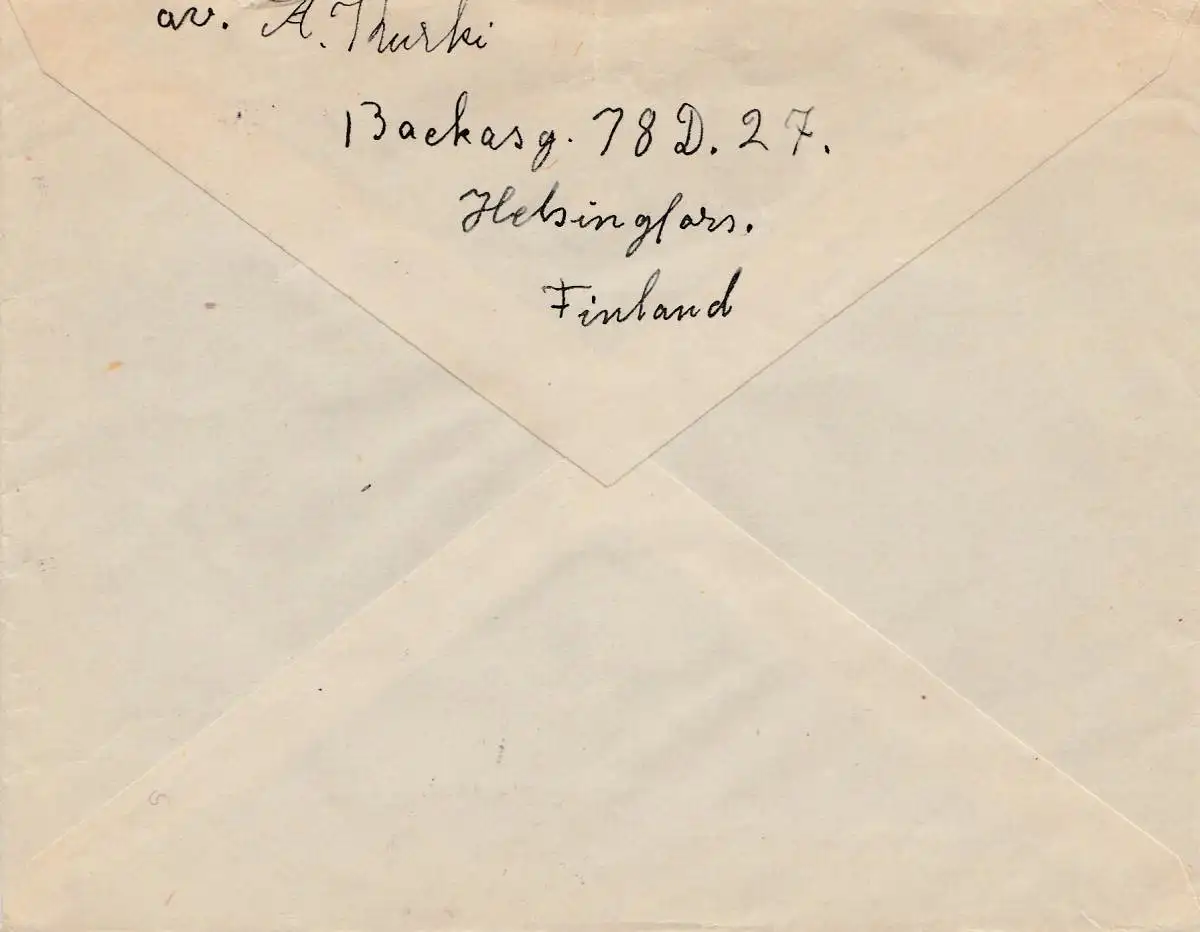 av. A. Kurki
Backasg. 78 D. 27.
Helsingfors.
Finland